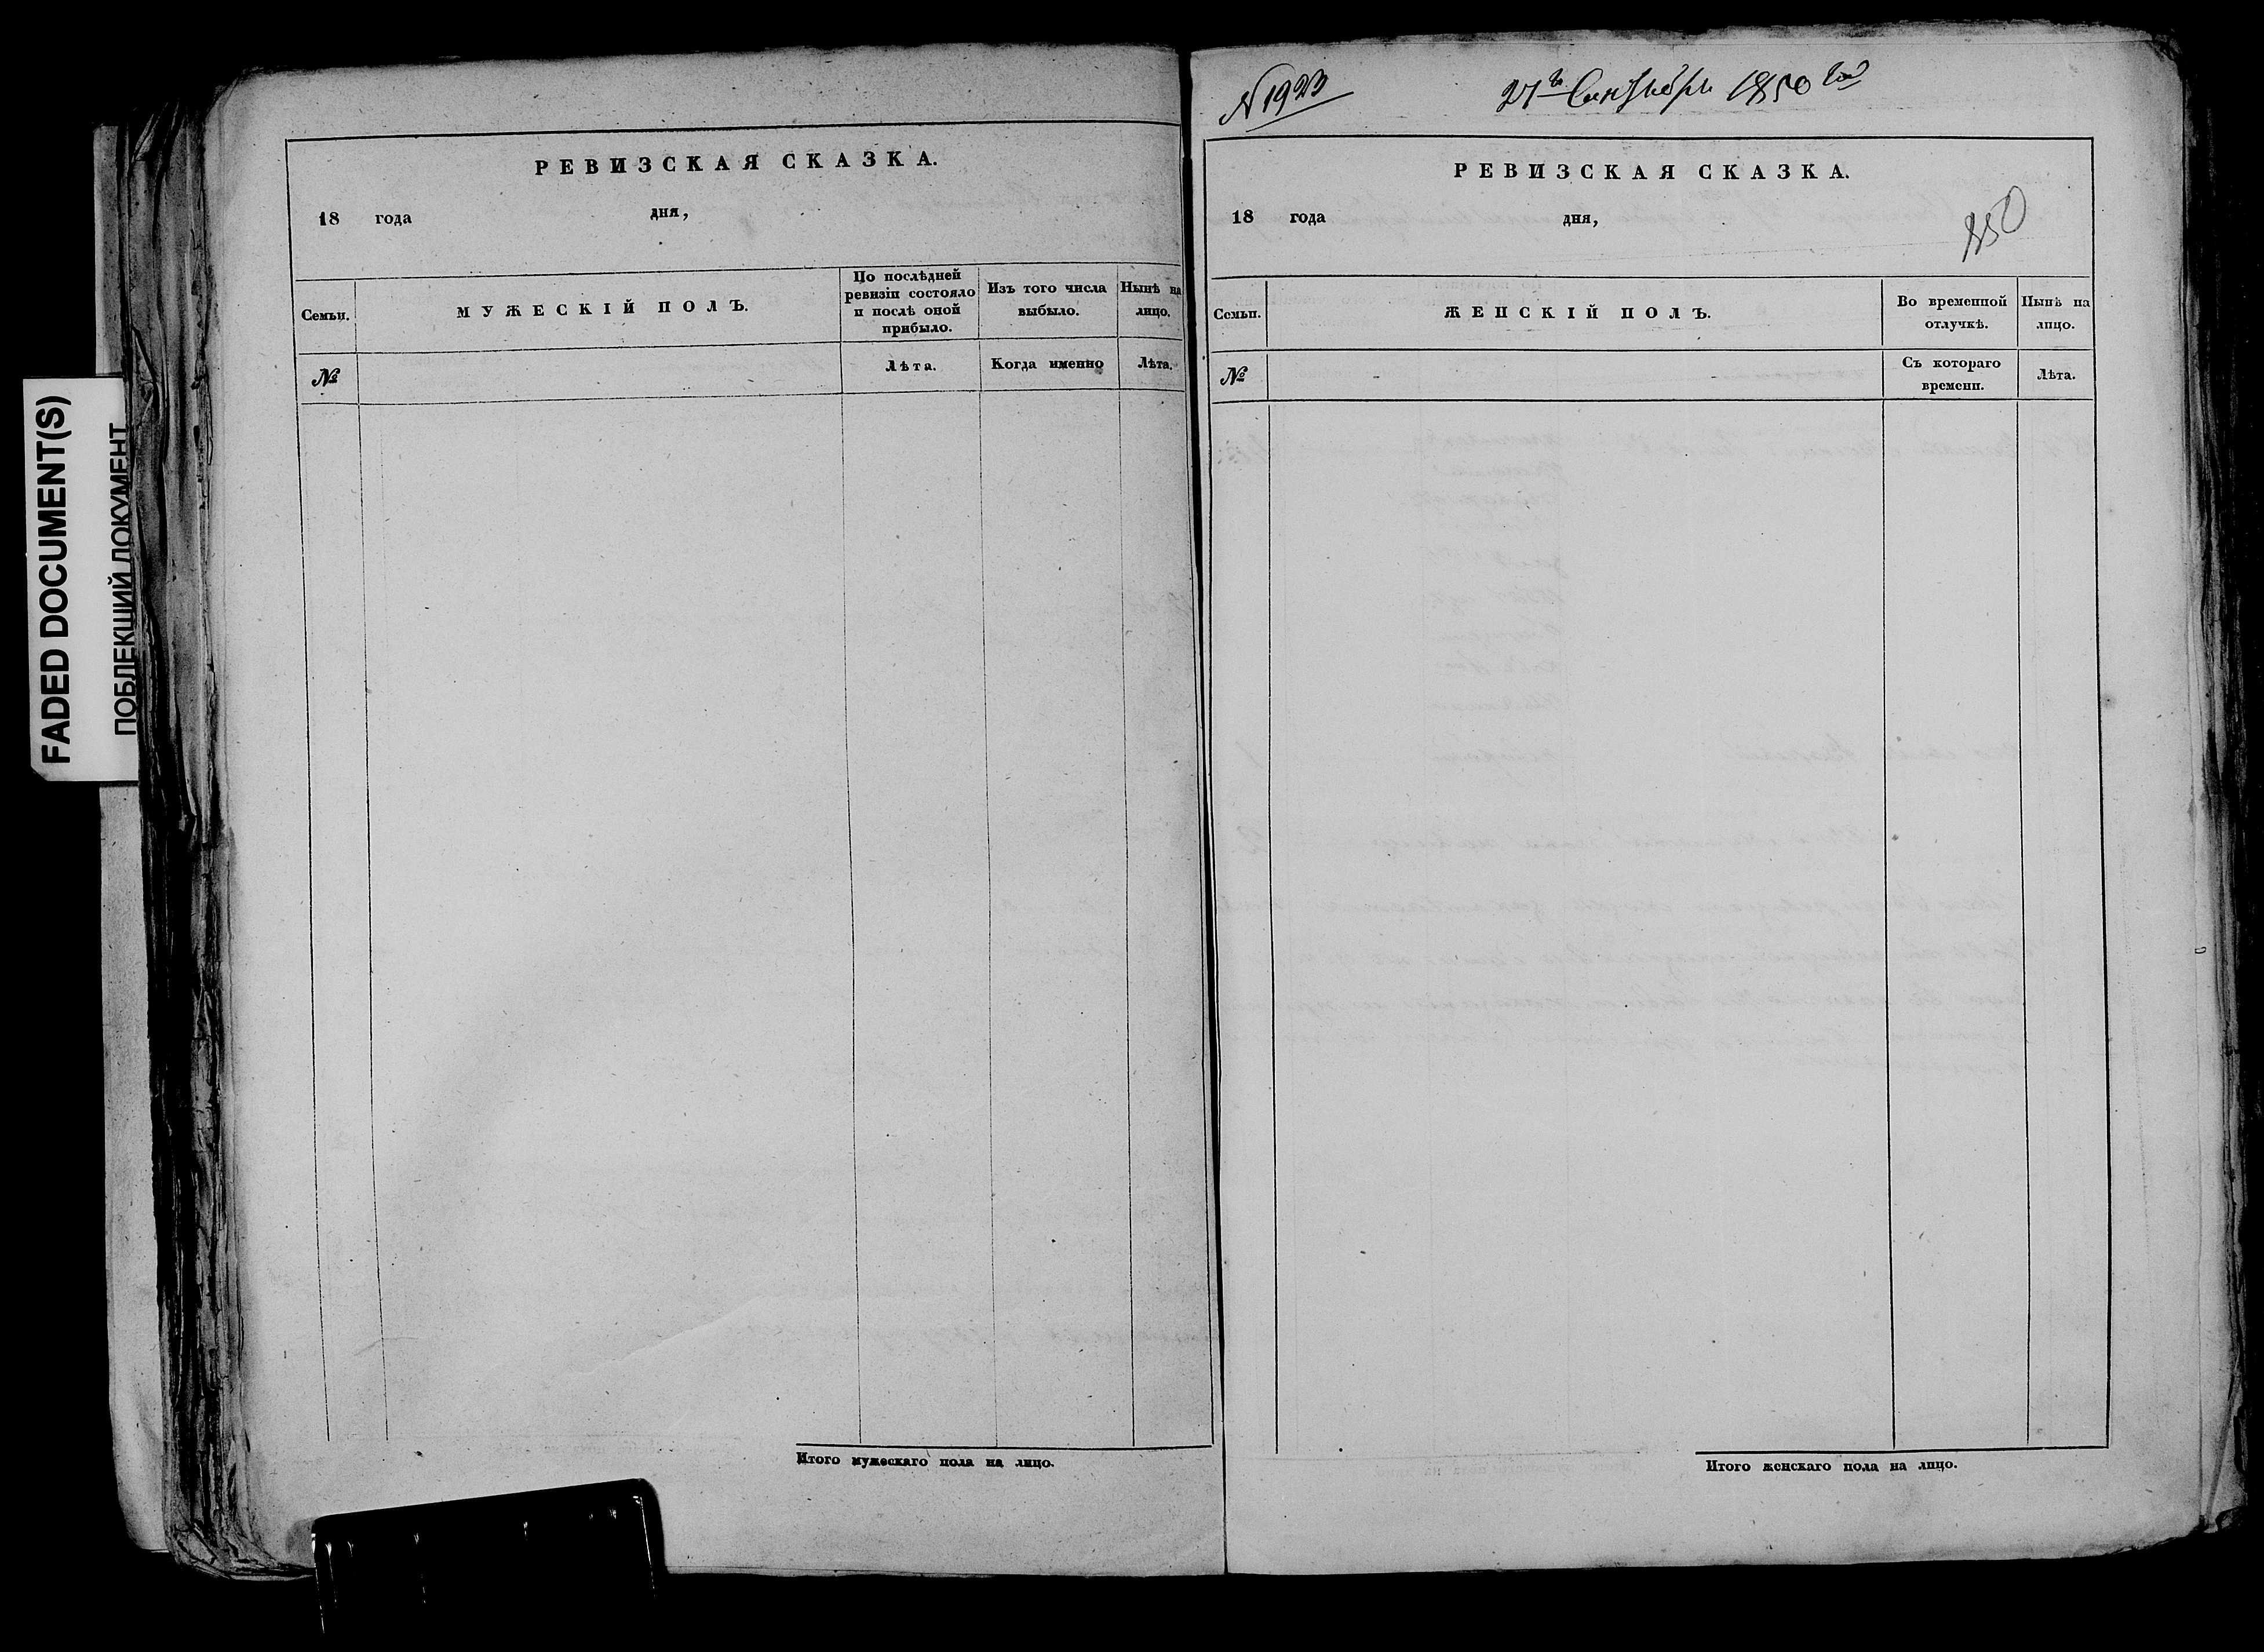 FADED DOCUMENT(S)
ПОБЛЕКШИЙ ДОКУМЕНТ
РЕВИЗСКАЯ СКАЗКА.
18 года дня,
Семьи.
МУЖЕСКІЙ ПОЛЪ.
По послѣдней
ревизіи состояло
и послѣ оной
прибыло.
Изъ того числа
выбыло.
Нынѣ на
лицо.
№
Лѣта.
Когда именно
Лѣта.
Итого мужескаго пола на лицо.
N 1923
27го Сентября 1850 год
РЕВИЗСКАЯ СКАЗКА.
18 года дня,
850
Семьи.
ЖЕНСКІЙ ПОЛЪ.
Во временной
отлучкѣ.
Нынѣ на
лицо.
№
Съ котораго
времени.
Лѣта.
Итого женскаго пола на лицо.